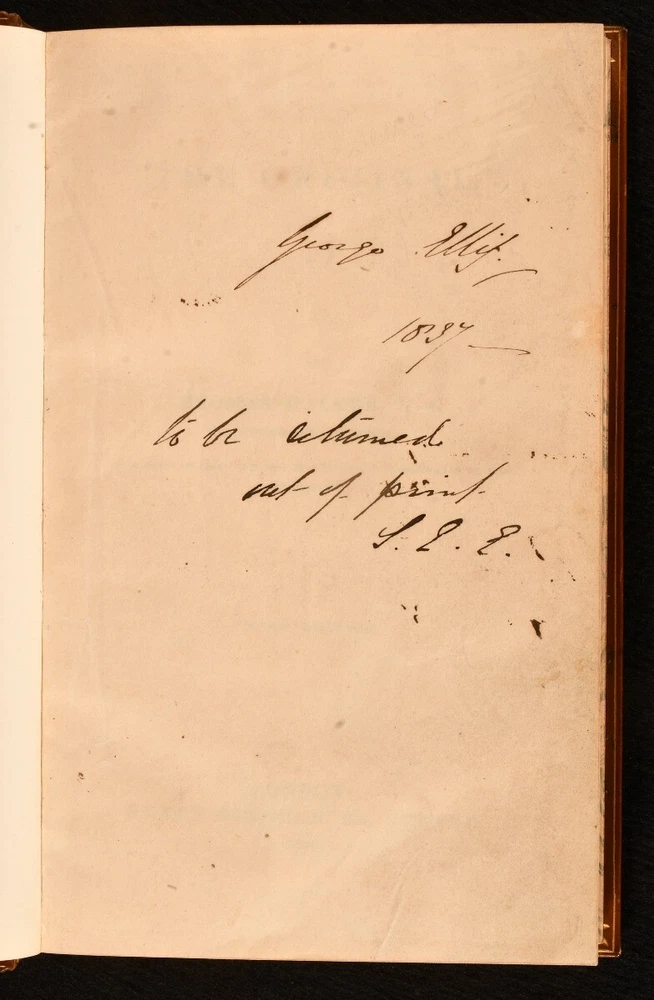 George Ellis.
1837
to be returned
out of print
S. E. E.